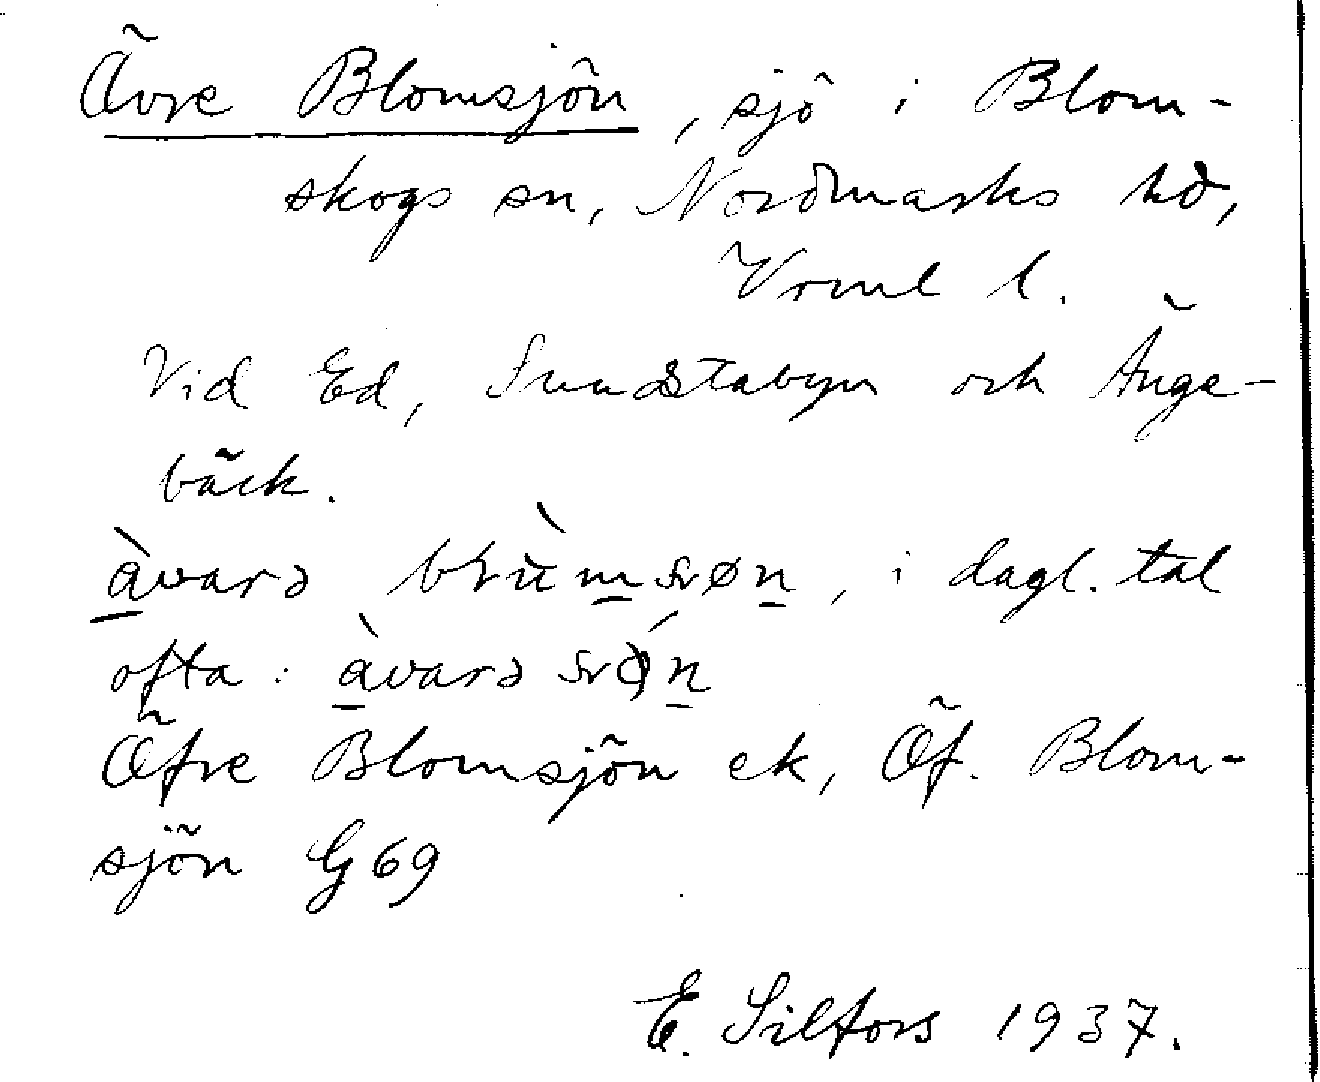 Övre Blomsjön, sjö i Blom-
skogs sn, Nordmarks hd,
Vrml l.
Vid Ed, Sundstabyn och Änge-
bäck.
i dagl. tal
ofta:
Öfre Blomsjön ek, Öf. Blom-
sjön G 69
E. Silfors 1937.